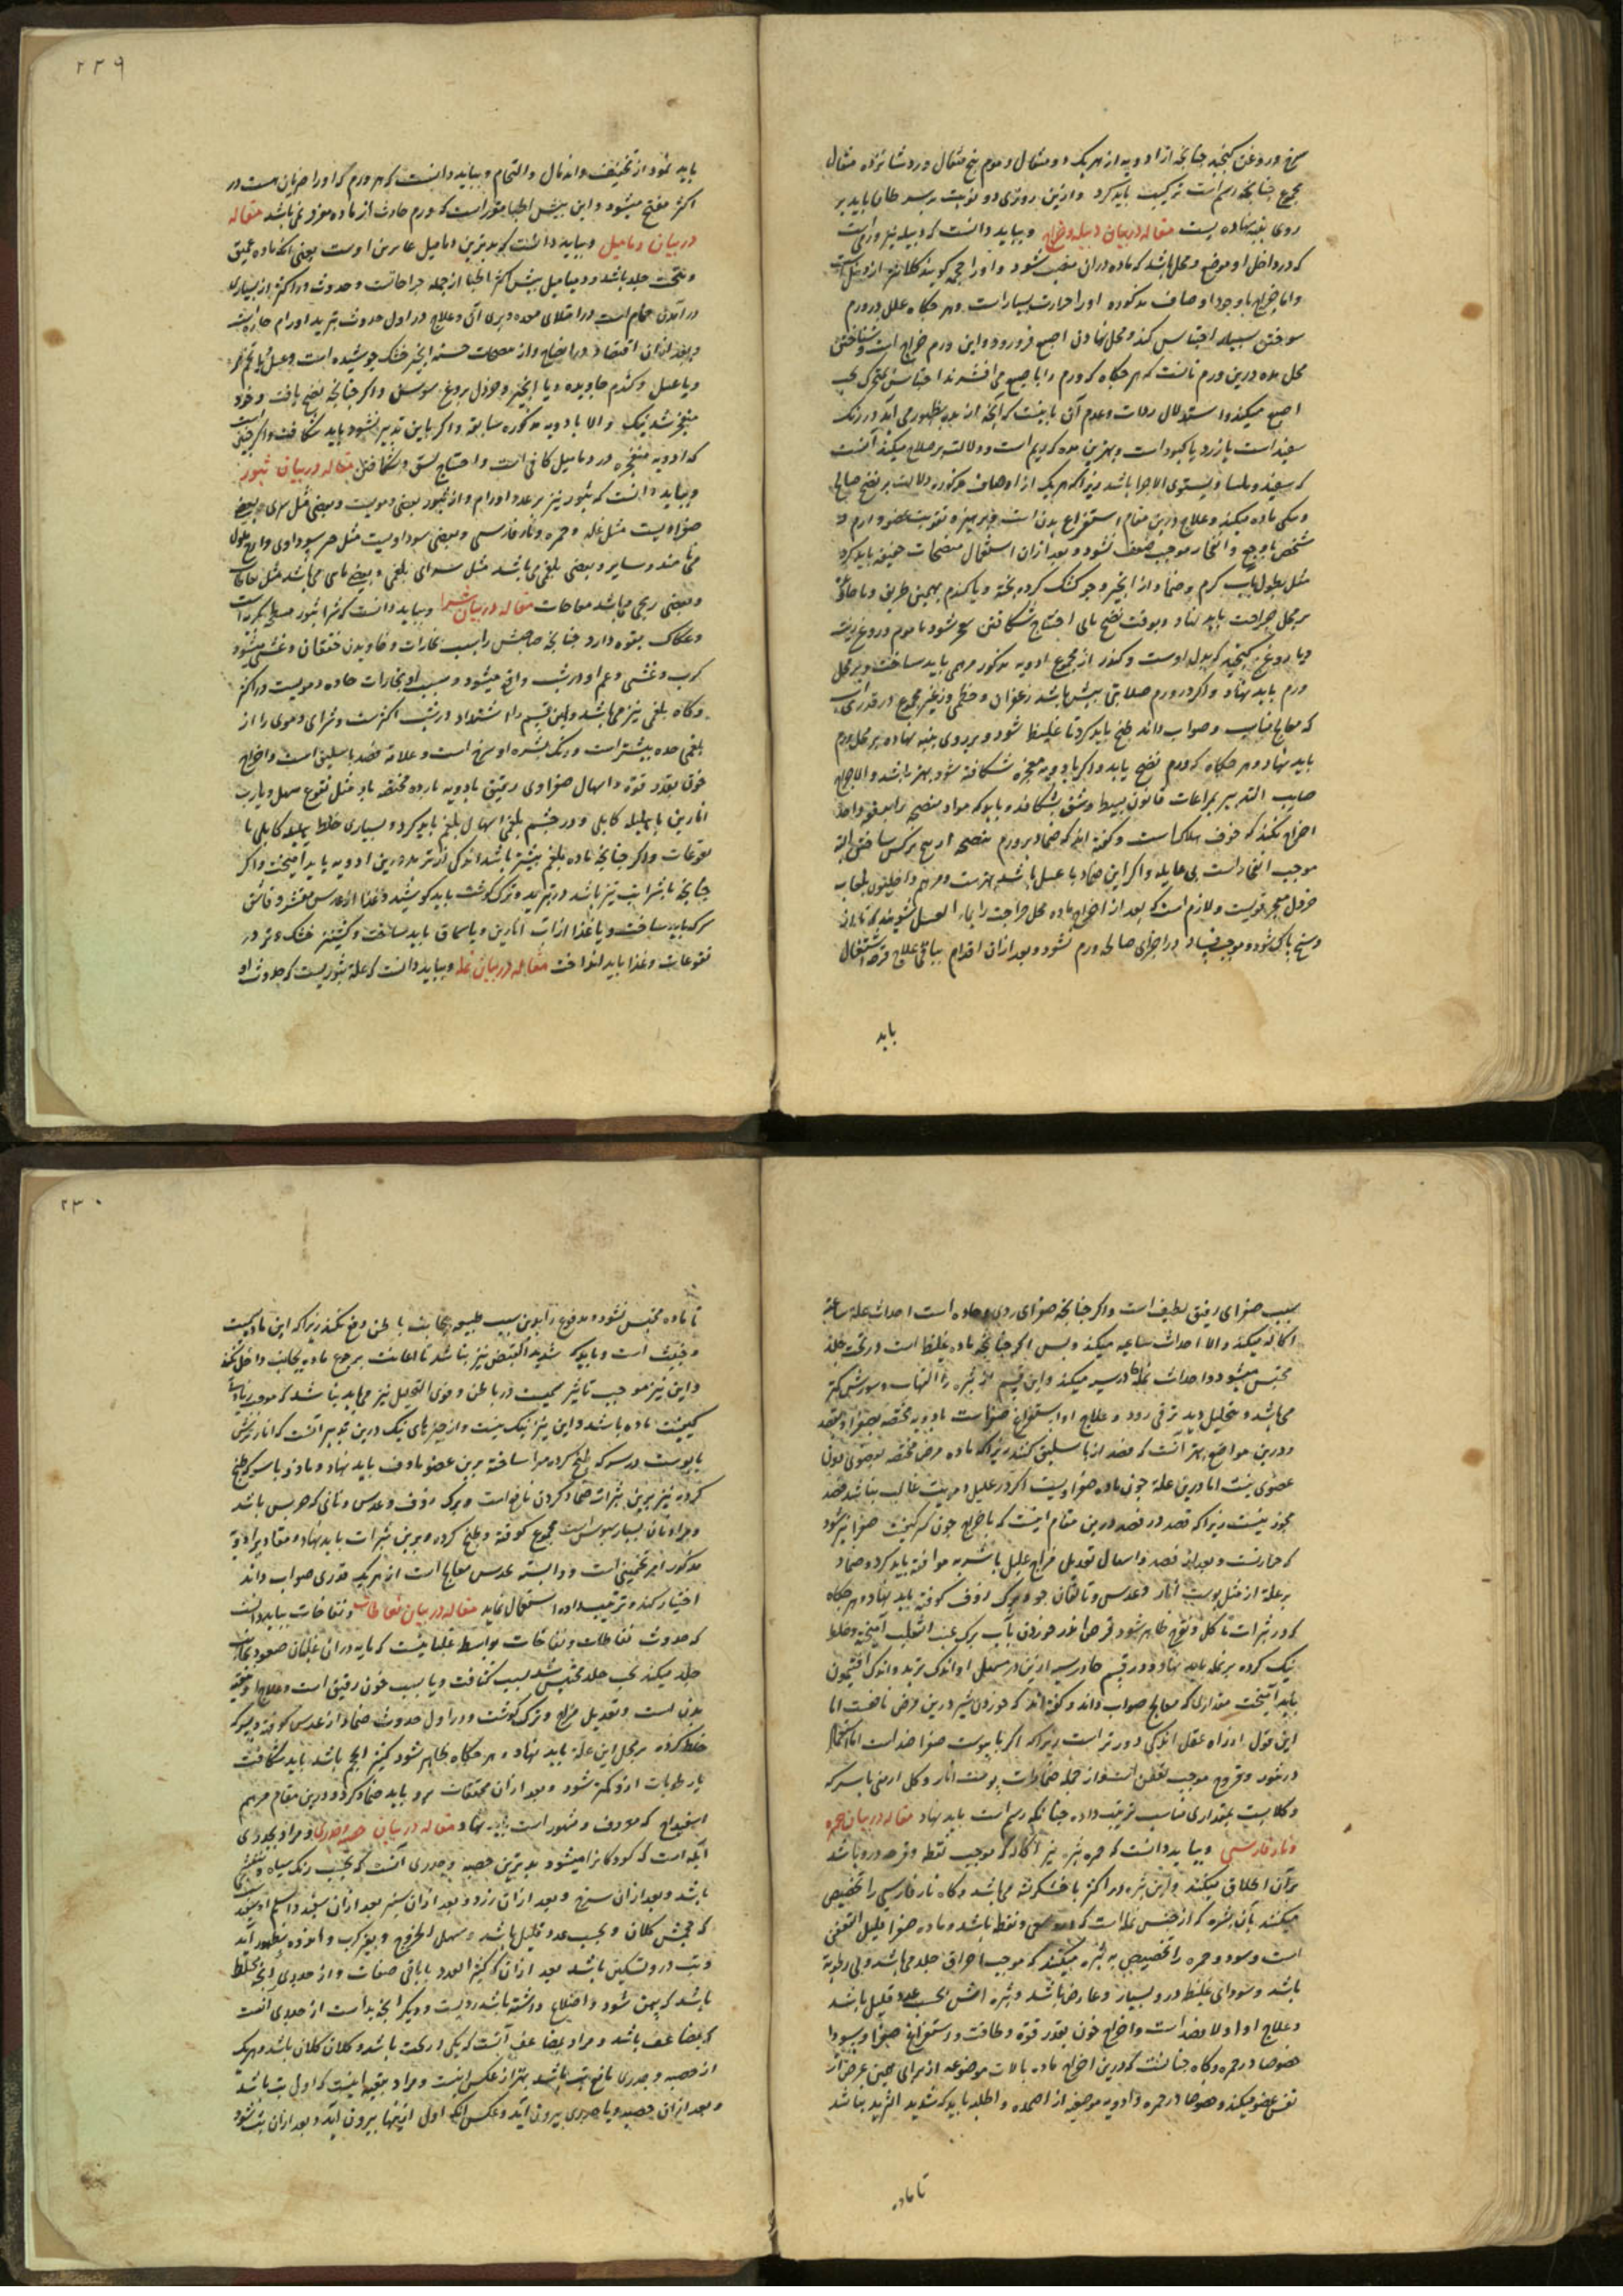 سرخ و روغن کنجید چنانچه از ادویه از هر یک دو مثقال و موم پنج مثقال و روغن شانزده مثقال
مجموع چنانچه رسم است ترکیب باید کرد و ازین روزی دو نوبت بر سرطان باید بر
روی پنبه نهاده بست مقاله در بیان دبیله و خراج و بباید دانست که دبیله نیز ورمی است
که در داخل او موضع و محل باشد که ماده در آن منصب شود
و اما خراج با وجود اوصاف مذکوره او را حرارت بسیار است و هر جکاه علل در ورم
محل مده درین ورم آنست که هر جکاه که ورم را باصبع می افشرند
اصبع میکند و استدلال ردائت و عدم آن باینست که آنچه از مده بظهور می آید در رنک
سفید است یا زرد یا کبود است و بهترین مده که دیم است و دلالت بر صلاح میکند آنست
که سفید و ملسا و مستوی الاجزا باشد زیرا که هر یک از اوصاف مذکوره دلالت بر نضج صالح
ومکی ماده میکند و علاج درین مقام استفراغ بدن است و پرهیز و تقویت عضو وارم
شخص تا وجع و انفجار موجب ضعف نشود و بعد از آن استعمال منضجات خفیفه باید کرد
مثل نطول بآب کرم و ضماد از انجیر و جو کشک کرده پخته و یا کندم بهمین طریق
بر محل جراحت باید نهاد و بوقت نضج تام احتیاج شکافتن
و یا روغن کنجید که بدل اوست و کندر از مجموع ادویه مذکور مرهمی باید ساخت و بر محل
ورم باید نهاد و اکر در ورم صلابتی بیش باشد زعفران و خطمی
که معالج مناسب و صواب داند طبخ باید کرد تا غلیظ شود و بر روی پنبه نهاده بر محل ورم
باید نهاد و هر جکاه که ورم نضج یابد و اکر بادویه مفجره شکافته شود بهتر باشد والا جراح
صایب التدبیر بمراعات قانون بسط و شق بشکافد و باید که مواد منضجه را بدفعه واحد
اخراج نکند که خوف هلاک است و گفته اند که ضماد بر ورم منضجه
موجب انفجار است بی حایله و اکر این ضماد با عسل باشد بهتر است و مرهم داخلیون بلعاب
خردل مفجر قویست و لازم است که بعد از اخراج ماده محل جراحت را بماء العسل بشویند تا از
وسخ پاک شود و موجب فساد در اجزای صالحه ورم نشود و بعد از آن اقدام بباقی علاج قرحه اشتغال
باید
۲۲۹
باید نمود از تجفیف و اندمال و التحام و بباید دانست که هر ورم که او را ضربان هست در
اکثر مفتح میشود و این پیش اطبا مقرر است که ورم حادث از ماده مفرد نمی باشد مقاله
در بیان دمامیل و بباید دانست که بدترین دمامیل غایرین اوست یعنی آنکه ماده عمیق
و تحت جلد باشد و دمامیل پیش اکثر اطبا از جمله جراحات است و حدوث او اکثر از بسیاری
در آمدن حمام است در امتلای معده و پری آن و علاج در اول حدوث تبرید اورام حاره است
و بعد از آن اقتصار در انضاج و از منضجات حسنه انجیر خشک جوشیده است و عسل
و یا عسل و کندم جاویده و یا انجیر و خردل بروغن سوسن و اکر چنانچه نضج یافت و خود
منفجر شد نیک والا بادویه مذکوره سابقه و اکر باین تدبیر نشود باید شکافت
که ادویه منفجره در دمامیل کافی است و احتیاج بشق و شکافتن مقاله در بیان بثور
و بباید دانست که بثور نیز بر عدد اورام و از بثور بعضی دمویست و بعضی مثل شری و بعضی
صفراویست مثل نمله و حمره و نار فارسی و بعضی سوداویست مثل جرب سوداوی
و بعضی بلغمی می باشد مثل شرای بلغمی و بعضی مائی می باشد مثل نفاطات
و بعضی ریحی می باشد مثل نفاخات مقاله در بیان شرا و بباید دانست که شرا بثور مسطح
کرب و غشی و غم او در شب واقع میشود و سبب او بخارات حاده دمویست در اکثر
و کاه بلغمی نیز می باشد و این قسم را اشتداد در شب اکثر است و شرای دموی را از
بلغمی حده بیشتر است و رنک بثره او سرخ است و علاج فصد باسلیق است و اخراج
خون بقدر قوه و اسهال صفراوی رقیق بادویه بارده مختصه باو مثل نقوع مسهل و یا رب
انارین با هلیله کابلی و در قسم بلغمی اسهال بلغم باید کرد و بسیاری خلط هلیله کابلی با
نقوعات و اکر چنانچه ماده بلغم بیشتر باشد اندکی از تربد درین ادویه باید آمیخت و اکر
در تبرید و ترک کوشت باید کوشید و غذا از عدس مقشر و ماش
سرکه باید ساخت و یا غذا از آب انارین و یا سماق باید ساخت و کشنیز خشک
نقوعات و غذا باید انداخت مقاله در بیان نمله و بباید دانست که نمله بثوریست که حدوث او
سبب صفرای رقیق لطیف است و اکر چنانچه صفرای ردی و حاده است احداث نمله ساعیه
اکاله میکند والا احداث ساعیه میکند و بس اکر چنانچه ماده غلیظ است در تحت جلد
محتبس میشود و احداث نمله جاورسیه میکند و این قسم از بثره را التهاب و سوزش کمتر
می باشد و تحلیل دیرتر می رود و علاج او استفراغ صفراست بادویه مختصه بصفرا
و درین مواضع بهتر آنست که فصد از باسلیق کنند زیرا که ماده مرض مختصه بعضوی دون
عضوی نیست اما درین علة چون ماده صفراویست اکر در علیل دمویت غالب نباشد فصد
مجوز نیست زیرا که فصد درین مقام اینست که باخراج خون کسر کیفیت صفرا نیز شود
که حارست و بعد از فصد و اسهال تعدیل مزاج علیل باشربه موافقه باید کرد و ضماد
بر علة از مثل پوست انار و عدس و تلقان جو و برک رؤف کوفته باید نهاد و هر جکاه
که در بثرات تاکل و تقرح ظاهر شود قرص اندرخوردن بآب برک عنب الثعلب آمیخته و خلط
نیک کرده بر نمله باید نهاد و در قسم جاورسیه ازین در مسهل او اندک تربد و اندک افتیمون
باید آمیخت مقداری که معالج صواب داند و گفته اند که خوردن شیر درین مرض نافعست اما
این قول از راه عقل اندکی دورتر است زیرا که اکر با یبوست صفرا ضد است
در بثور و قروح موجب تعفن است و از جمله ضمادات پوست انار و کل ارمنی با سرکه
و کلابست بمقداری مناسب ترتیب داده چنانکه رسم است باید نهاد مقاله در بیان حمره
و نار فارسی و بباید دانست که حمره بثره نیز اکاله که موجب نقط و قرحه درو باشد
بر آن اطلاق میکنند و این بثره در اکثر با خشکریشه می باشد و کاه نار فارسی را تخصیص
میکنند بآن بثره که از جنس نمله است که درو سعی و نقط باشد و ماده صفرا قلیل التعفن
است و سودا و حمره را تخصیص به بثره میکنند که موجب احراق جلد می باشد و بی رطوبه
باشد و سودای غلیظ درو بسیار و عارض باشد و بثره اش بحسب عدد قلیل باشد
و علاج او اولا فصد است و اخراج خون بقدر قوة و طاقت و استفراغ صفرا و سودا
خصوصا در حمره و کاه چنانست که درین اخراج ماده بآلات موضوعه از برای همین غرض از
نفس عضو میکنند خصوصا در حمره و ادویه موضعیه از اضمده و اطلیه باید که شدید التبرید نباشد
تا ماده
۲۳۰
تا ماده محتبس نشود و مدفوع را بدین سبب طبیعه بجانب باطن دفع نکند زیرا که این ماده سمیت
و خبیث است و باید که شدید القبض نیز نباشد تا اعانت بر رجع ماده بجانب داخل نکند
و این نیز موجب تاثیر سمیت در باطن و قوی التحلیل نیز می باید نباشد که موجب زیادتی
کیفیت ماده باشد و این نیز نیک نیست و از چیزهای نیک درین تدبیر آنست که انار ترش
با پوست در سرکه طبخ کرده مهرا ساخته برین عضو ماؤف باید نهاد و مازو با سرکه طبخ
کرده نیز برین بثرات ضماد کردن نافع است و برک رؤف و عدس و نانی که خربس باشد
و مراد نان بسیار سبوس است مجموع کوفته و طبخ کرده و برین بثرات باید نهاد و مقادیر ادویه
مذکور امر تخمینی است و وابسته بحدس معالج است از هر یک قدری صواب داند
اختیار کند و ترتیب داده استعمال نماید مقاله در بیان نفاطات و نفاخات بباید دانست
که حدوث نفاطات و نفاخات بواسطه غلیانیست که مایه در آن غلیان صعود بجانب
جلد میکند تحت جلد محتبس شد بسبب کثافت و یا سبب خون رقیق است و علاج او تنقیه
بدن است و تعدیل مزاج و ترک کوشت و در اول حدوث ضماد از عدس کوفته
خلط کرده بر محل این علة باید نهاد و هر جکاه ظاهر شود کثیر الحجم باشد باید شکافت
تا رطوبات ازو کمتر شود و بعد از آن مجففات برو باید ضماد کرد و درین مقام مرهم
اسفیداج که معروف و مشهور است باید نهاد مقاله در بیان حصبه و جدری و مراد بجدری
آبله است که کودکانرا میشود بدترین حصبه و جدری آنست که بحسب رنک سیاه و بنفش
باشد و بعد از آن سرخ و بعد از آن زرد و بعد از آن سبز بعد از آن سفید و اسلم او سفید
که حجمش کلان و بحسب عدد قلیل باشد و سهل الخروج و بغیر کرب و اندوه بظهور آید
و تب درو تسکین باشد بعد از آن که کثیر العدد با باقی صفات و از جدری آنچه مختلط
باشد که پهن شود و اضلاع داشته باشد ردیست و دیکر آنچه بد است از جدری آنست
که مضاعف باشد و مراد بمضاعف آنست که یکی در تحت باشد و کلان کلان باشد و هر یک
از حصبه و جدری تابع تب باشد بهتر از عکس اینست و مراد بتبعیه اینست که اول تب باشد
و بعد از آن حصبه و یا جدری بیرون آید و عکس آنکه اول اینها بیرون آید و بعد از آن تب شود